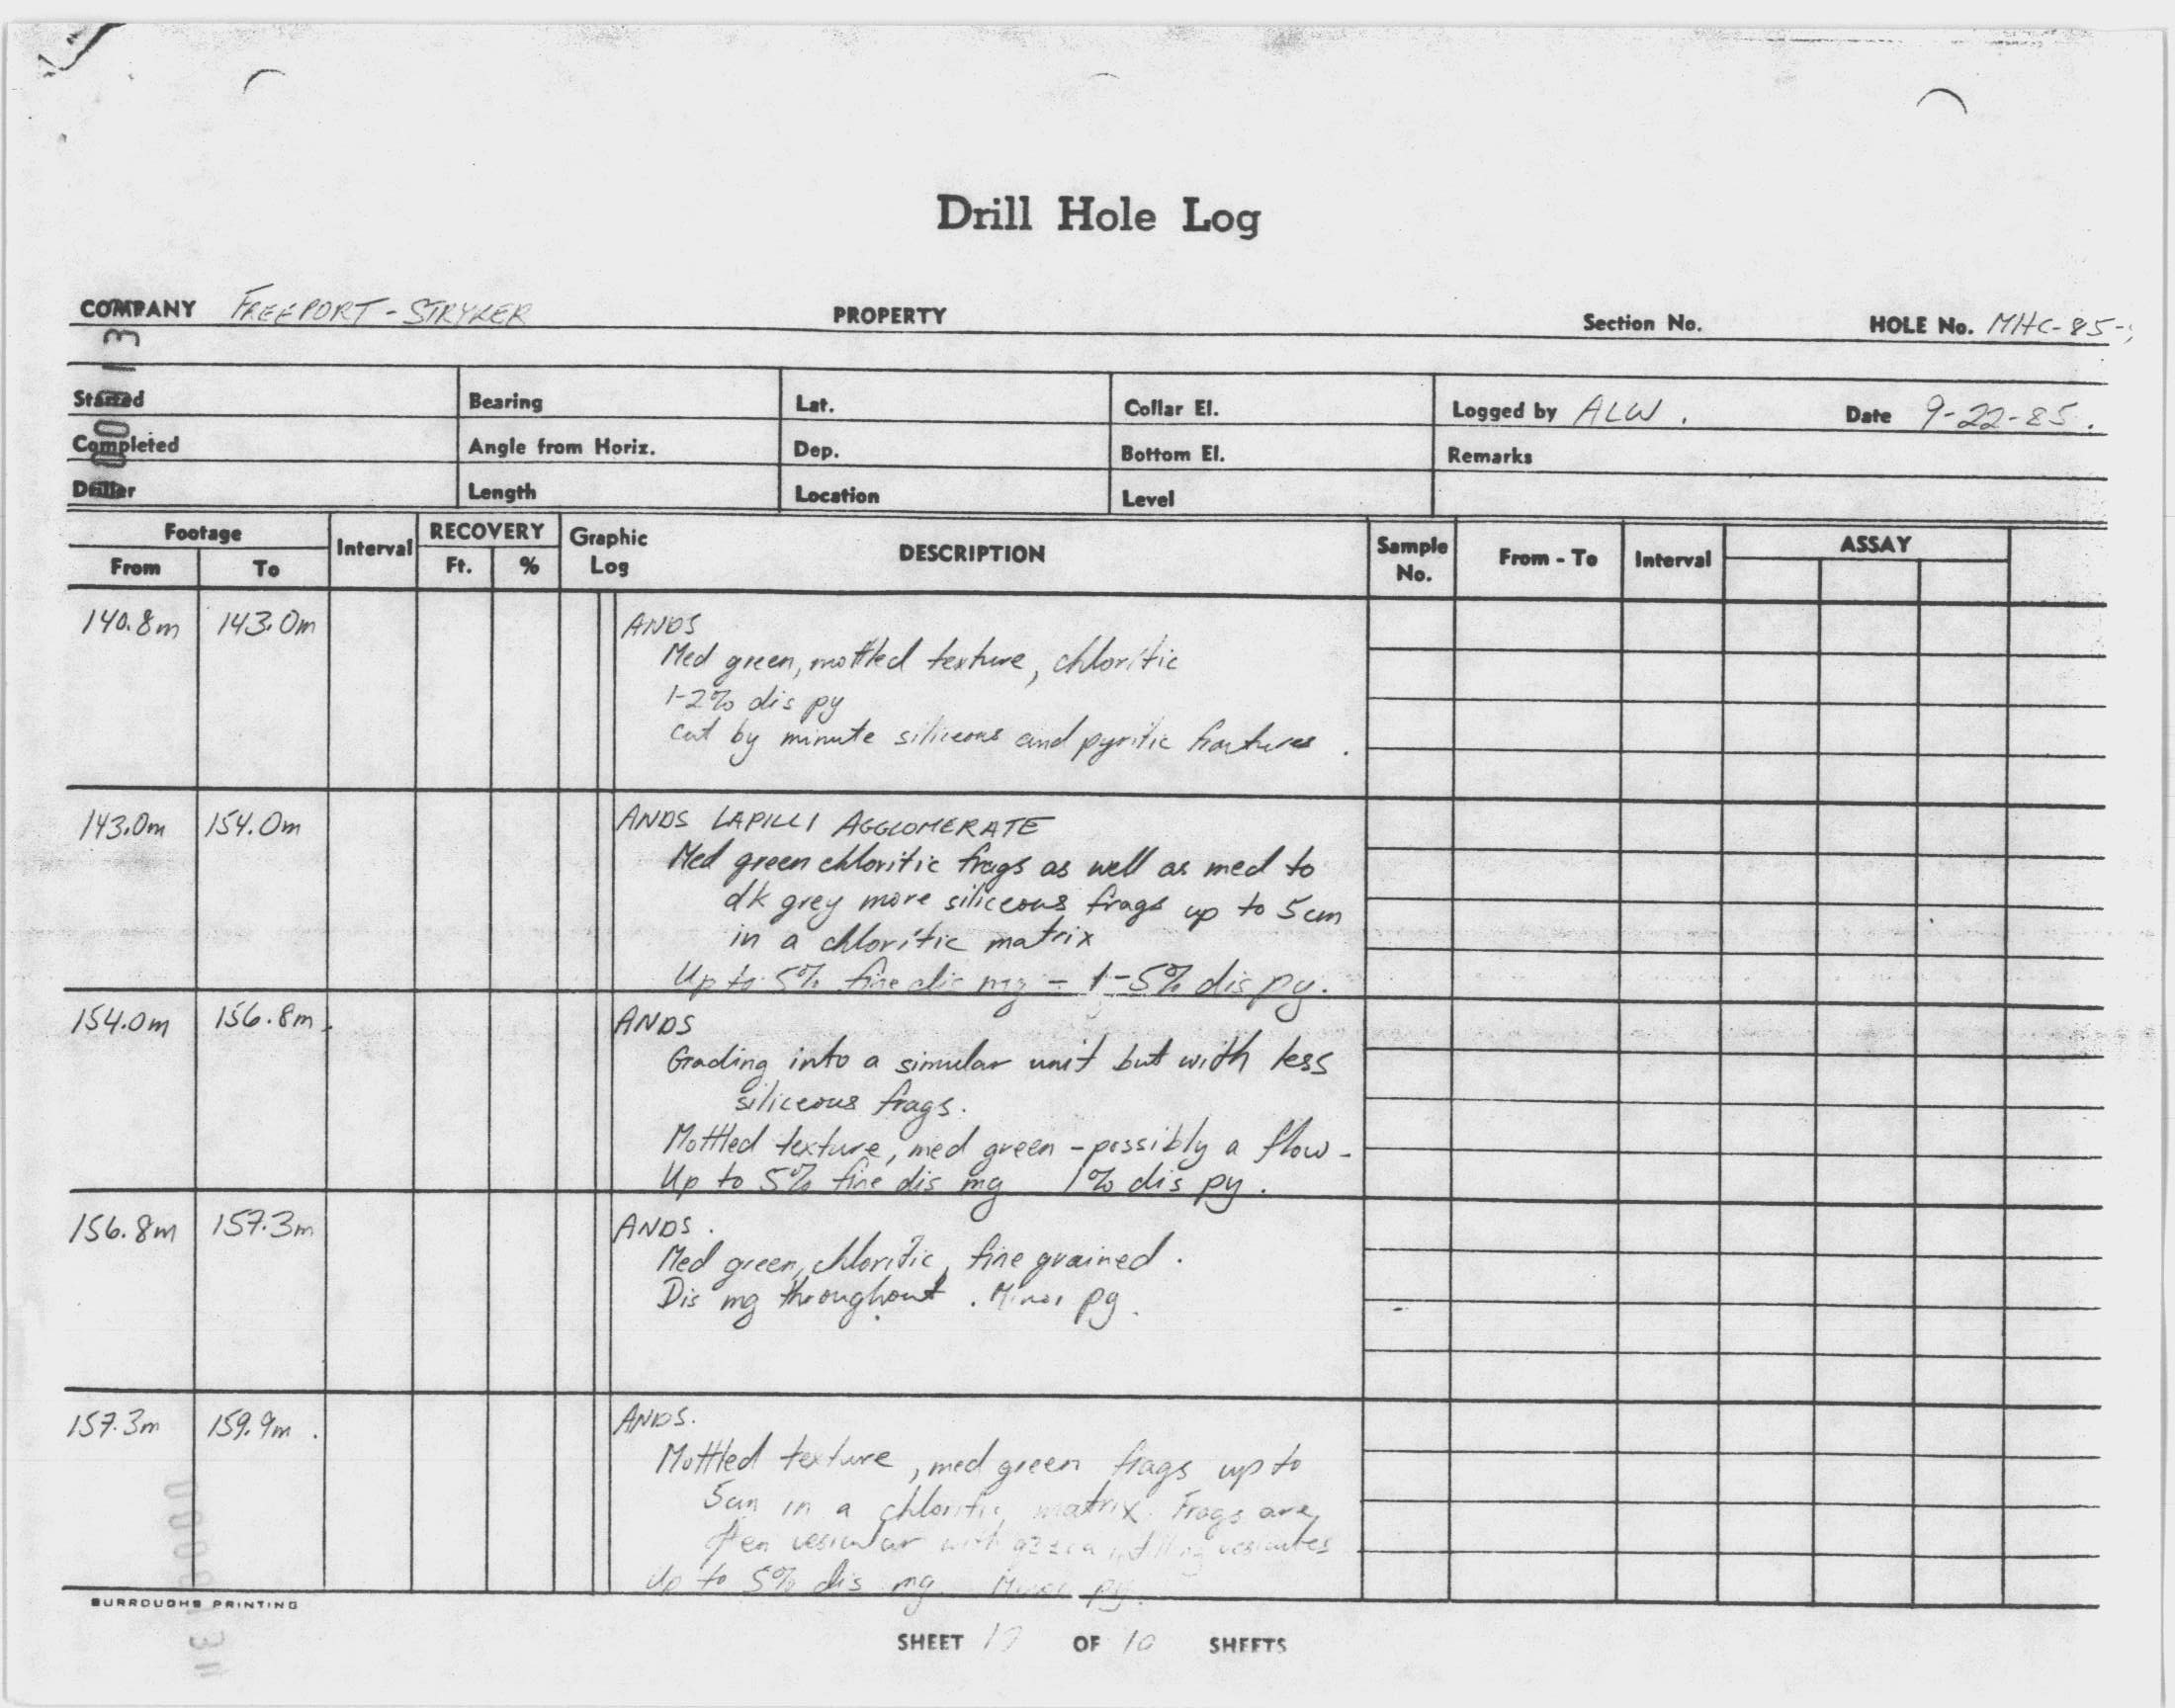 Drill Hole Log
COMPANY FREEPORT-STRYKER PROPERTY Section No. HOLE No. MHC-85-
Started Bearing Lat. Collar El. Logged by ALW. Date 9-22-85.
Completed Angle from Horiz. Dep. Bottom El. Remarks
Driller Length Location Level
Footage Interval RECOVERY Graphic Log DESCRIPTION Sample No. From - To Interval ASSAY
From To Ft. %
140.8m 143.0m ANDS
Med green, mottled texture, chloritic
1-2% dis py
cut by minute siliceous and pyritic fractures.
143.0m 154.0m ANDS LAPILLI AGGLOMERATE
Med green chloritic frags as well as med to
dk grey more siliceous frags up to 5cm
in a chloritic matrix
Up to 5% fine dis mg - 1-5% dis py.
154.0m 156.8m. ANDS
Grading into a simular unit but with less
siliceous frags.
Mottled texture, med green - possibly a flow -
Up to 5% fine dis mg 1% dis py.
156.8m 157.3m ANDS.
Med green, chloritic, fine grained.
Dis mg throughout. Minor py.
157.3m 159.9m. ANDS.
Mottled texture, med green frags up to
5cm in a chloritic matrix. Frags are
often vesicular with infilling vesicules
Up to 5% dis mg Minor py.
BURROUGHS PRINTING
SHEET OF 10 SHEETS